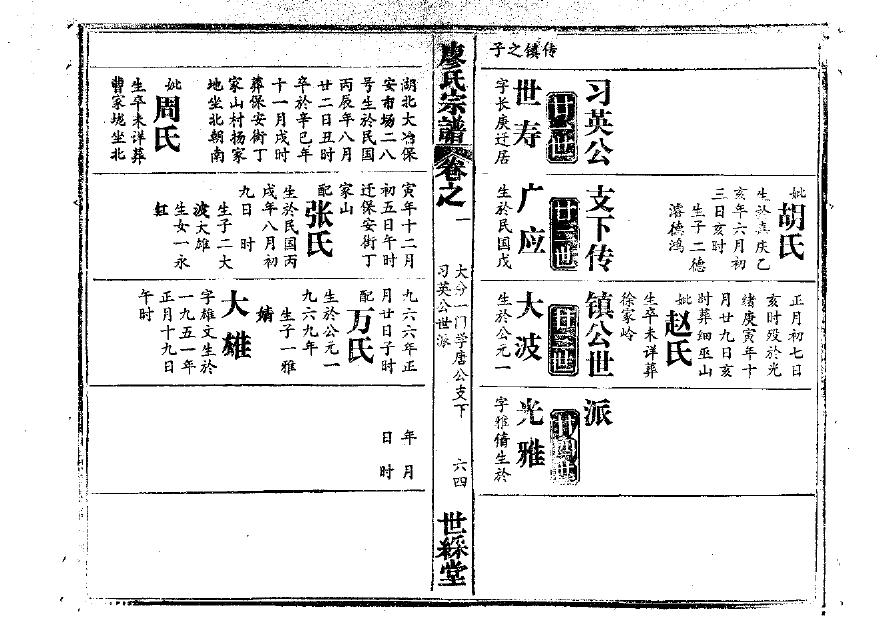 传镇之子
习英公
支下传
镇公世
派
妣
胡氏
生於嘉庆乙
亥年六月初
三日亥时
生子二德
濬德鸿
正月初七日
亥时殁於光
绪庚寅年十
月廿九日亥
时葬细巫山
妣
赵氏
生卒未详葬
徐家岭
世寿
字长庚迁居
廿二世
广应
生於民国戊
廿三世
大波
生於公元一
廿四世
光雅
字雅倩生於
廖氏宗譜
卷之一
大分一门学唐公支下
习英公世派
六四
世綵堂
湖北大冶保
安市场二八
号生於民国
丙辰年八月
廿二日丑时
卒於辛巳年
十一月戌时
葬保安街丁
家山村杨家
地坐北朝南
妣
周氏
生卒未详葬
曹家塊坐北
寅年十二月
初五日午时
迁保安街丁
家山
配
张氏
生於民国丙
戌年八月初
九日 时
生子二大
波大雄
生女一永
红
九六六年正
月廿日子时
配
万氏
生於公元一
九六九年
生子一雅
婧
大雄
字雄文生於
一九五一年
正月十九日
午时
年 月
日 时